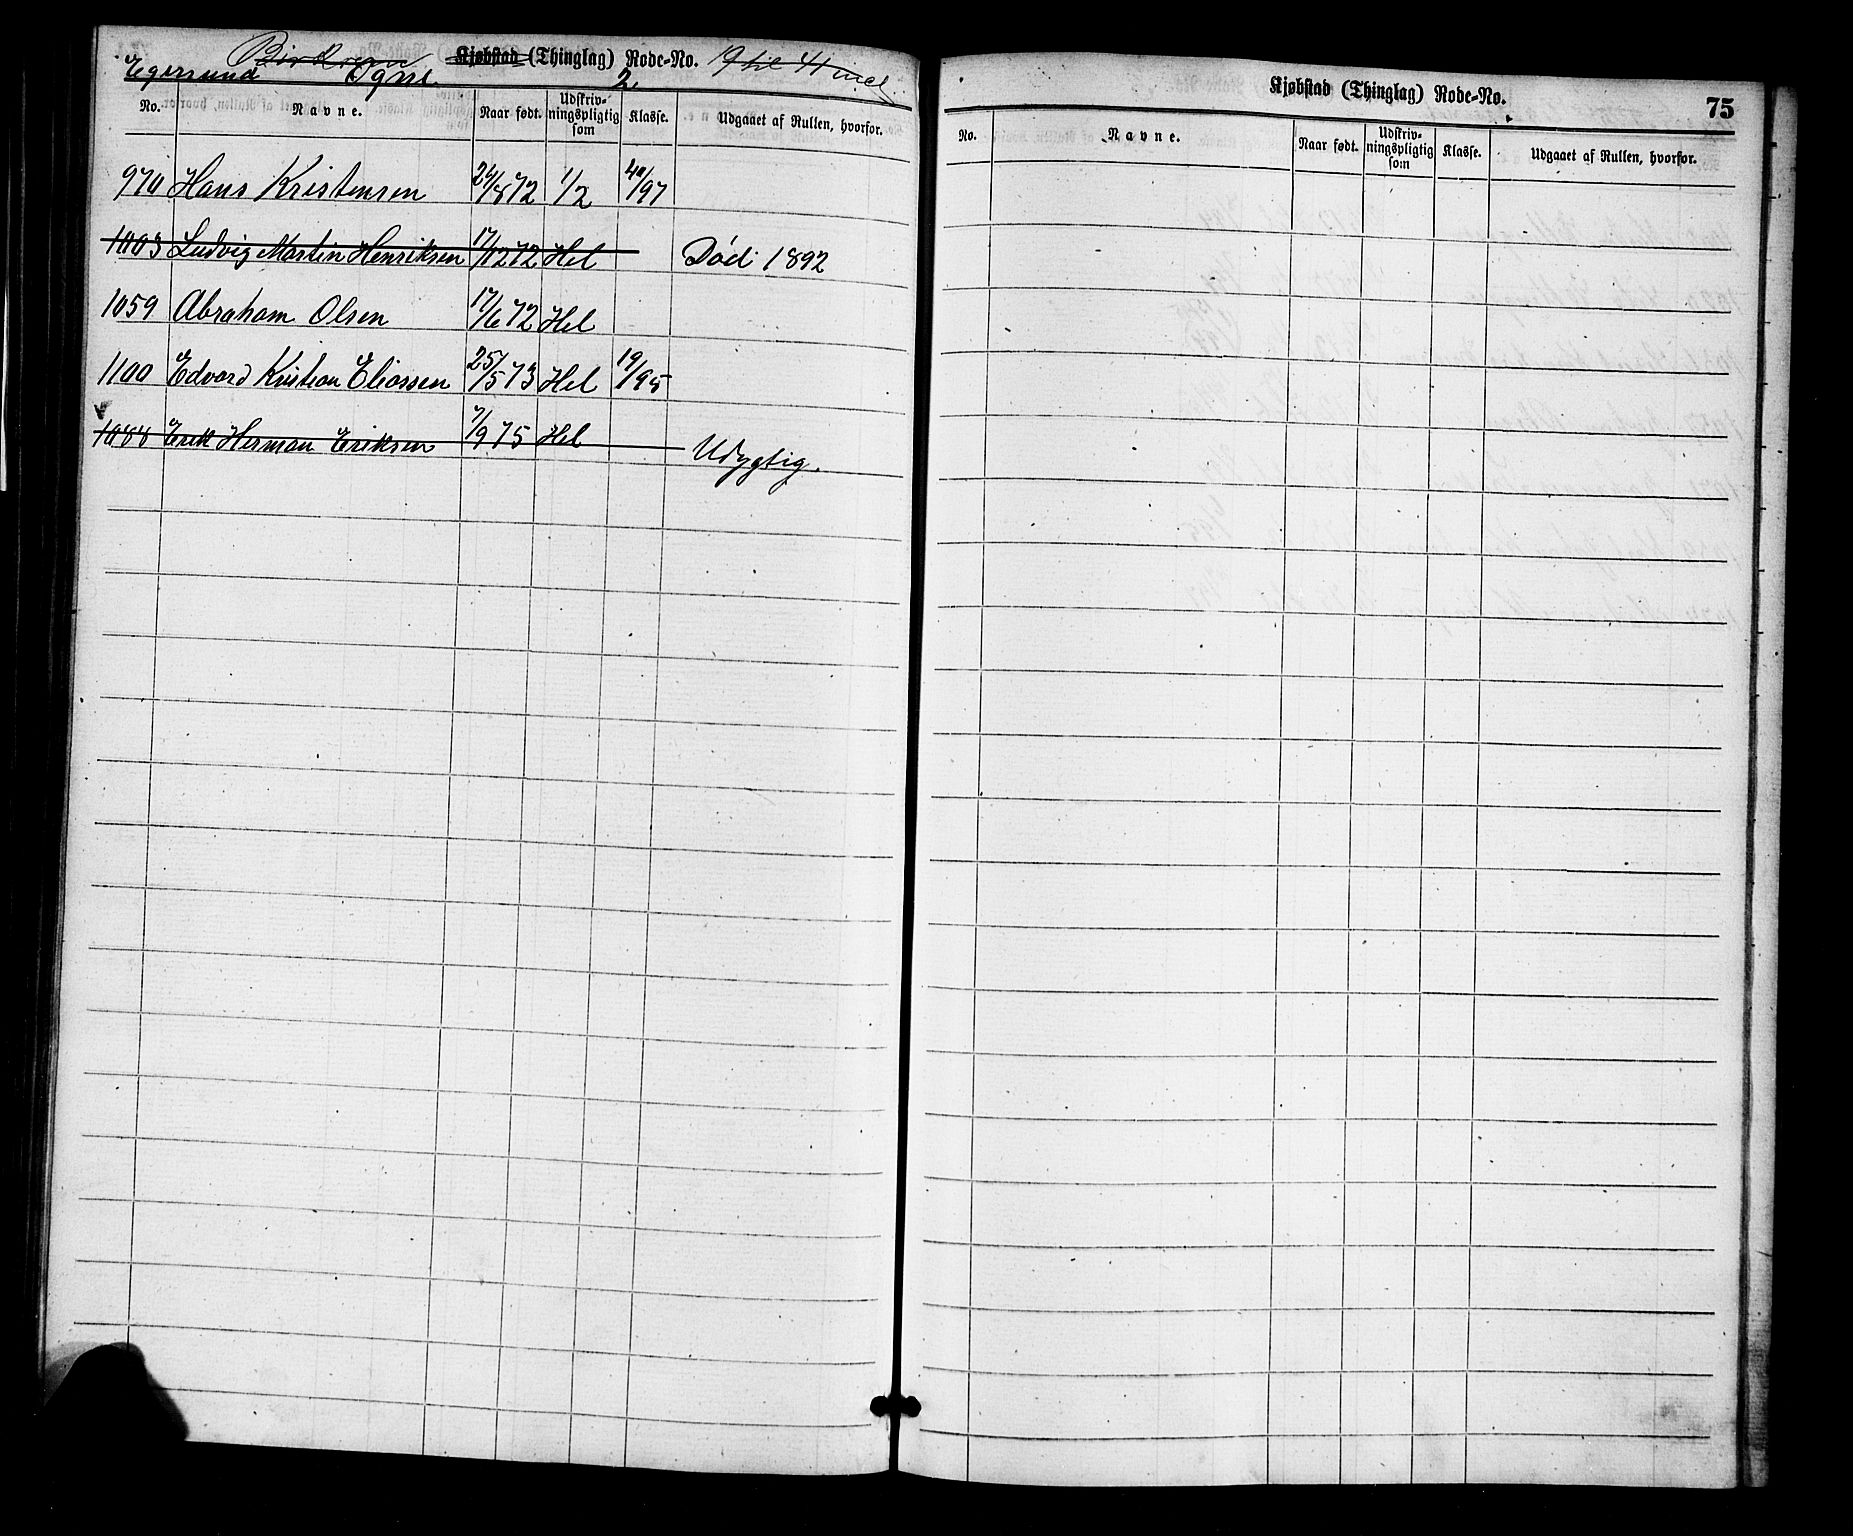 Birkrem Kjøbstad (Thinglag) Rode-No. 9 til 41 incl.
Egersund Ogne 2
No. Navne. Naar født. Udskriv-ningspligtig som Klasse. Udgaaet af Rullen, hvorfor.
970 Hans Kristensen 24/8 72 1/2 40/97
1003 Ludvig Martin Henriksen 17/12 72 Hel Død 1892
1059 Abraham Olsen 17/6 72 Hel
1100 Edvard Kristian Eliassen 25/5 73 Hel 19/95
1088 Erik Herman Eriksen 7/9 75 Hel Udygtig.
Kjøbstad (Thinglag) Rode-No.
75
No. Navne. Naar født. Udskriv-ningspligtig som Klasse. Udgaaet af Rullen, hvorfor.